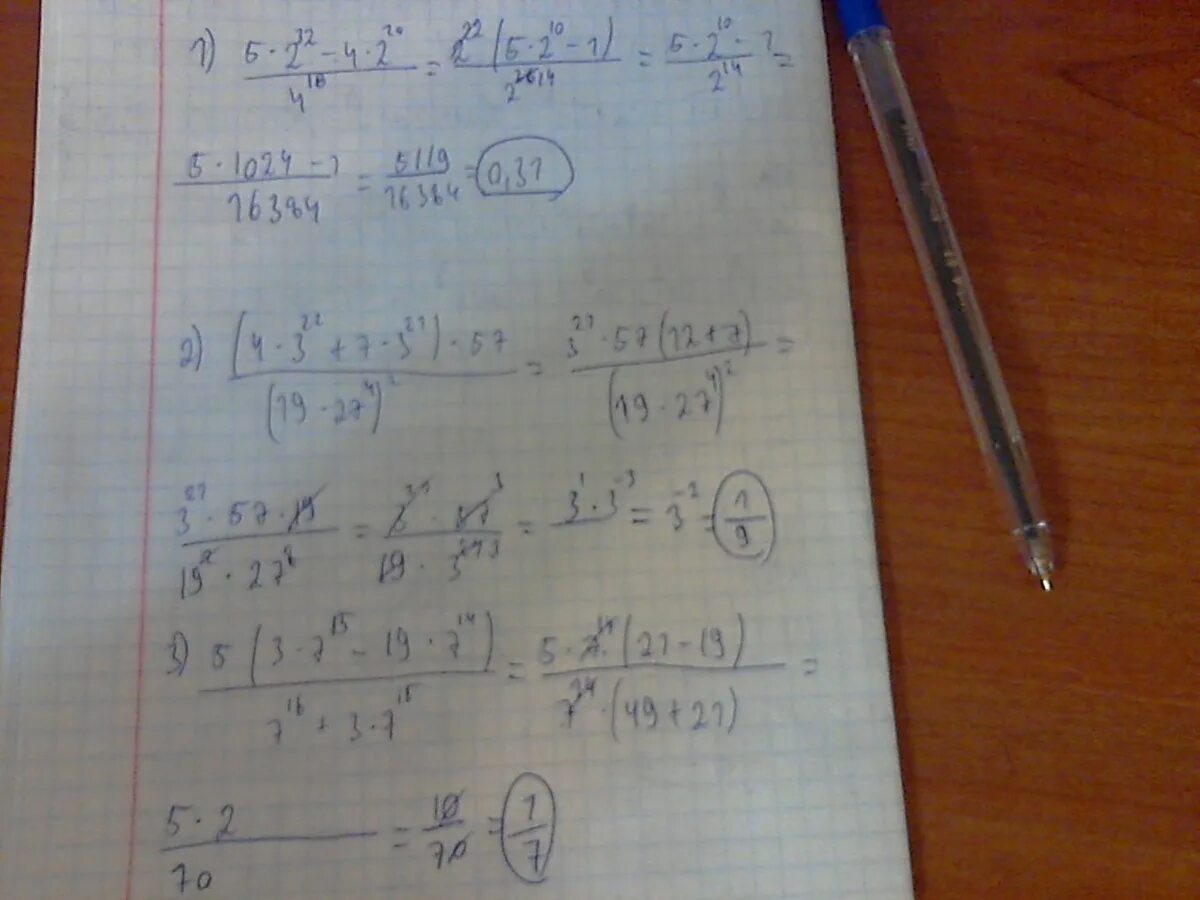 1) (5·2^32 − 4·2^20)/4^18 = 2^22(5·2^10 − 1)/2^14 = (5·2^10 − 1)/2^14 =
(5·1024 − 1)/16384 = 5119/16384 = 0,31
2) ((4·3^22 + 7·3^21)·57)/(19·27^4)^2 = (3^21·57(12+7))/(19·27^4)^2 =
(3^21·57·19)/(19^2·27^8) = (3^21·57^3)/(19·3^24 3) = 3^1·3^-3 = 3^-2 = 1/9
3) 5(3·7^15 − 19·7^14)/(7^16 + 3·7^15) = 5·7^14(21−19)/(7^14·(49+21)) =
(5·2)/70 = 10/70 = 1/7